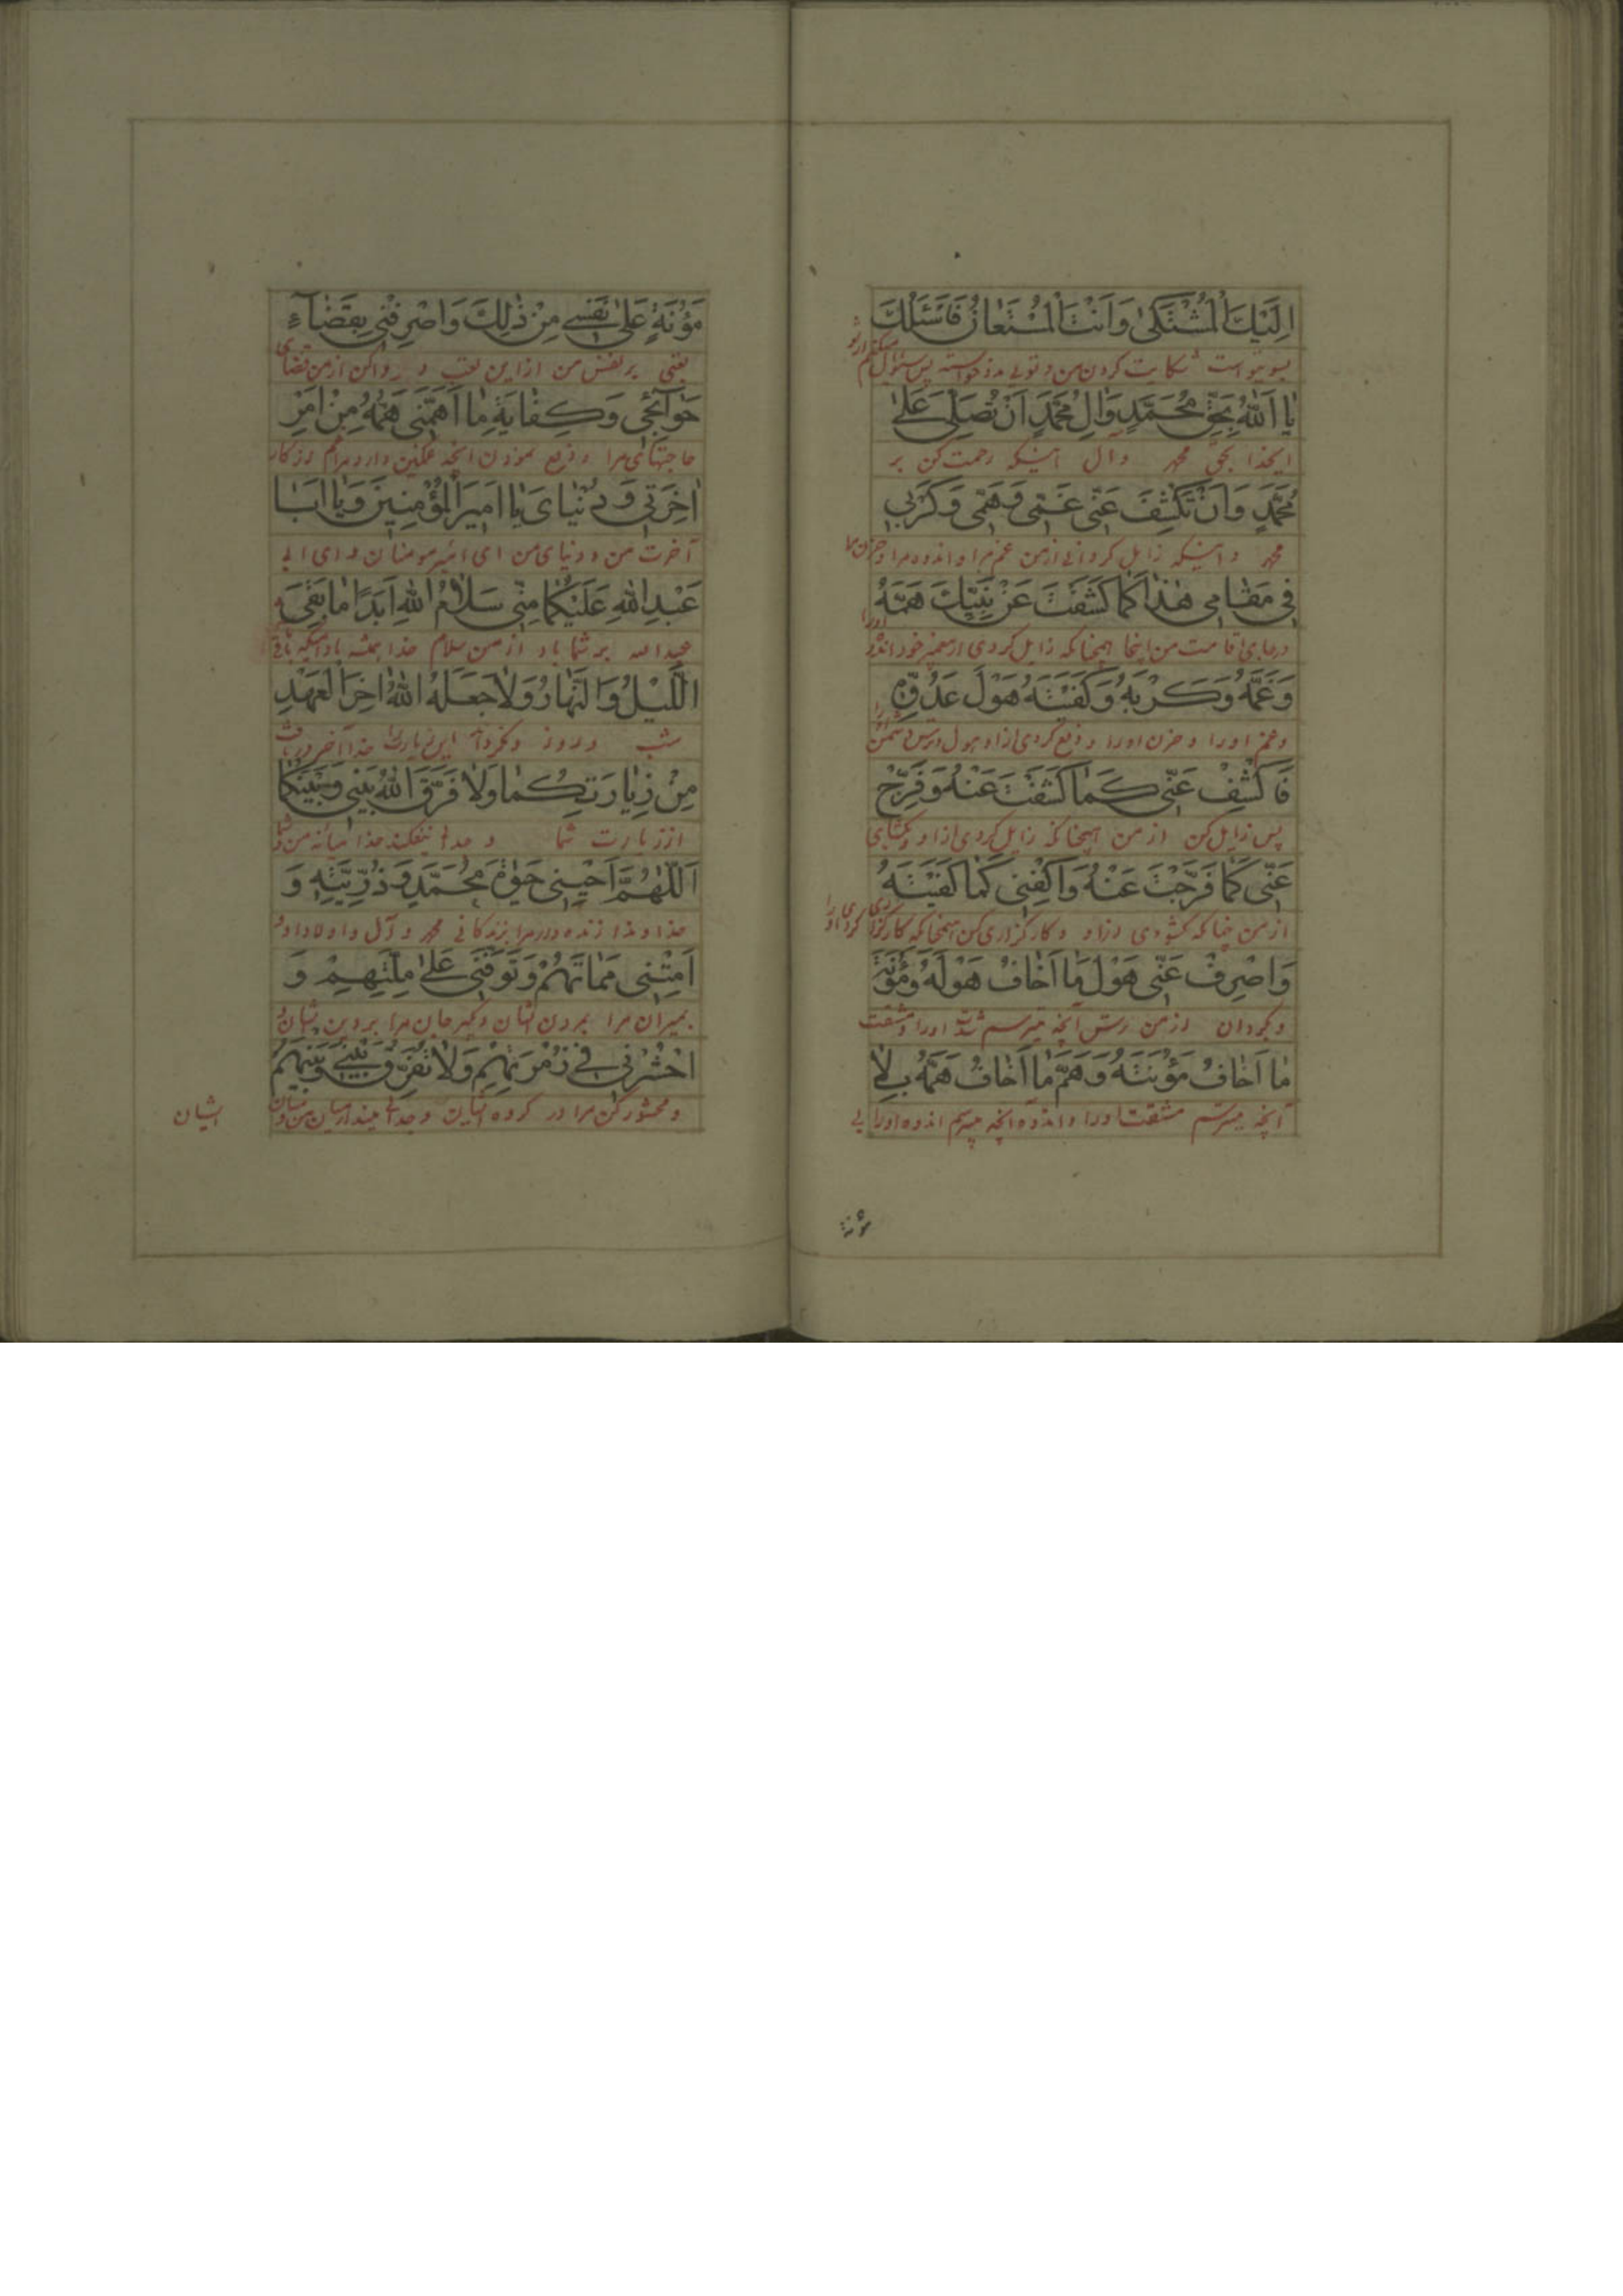 اِلَيْكَ الْمُشْتَكىٰ وَاَنْتَ الْمُسْتَعانُ فَاَسْئَلُكَ
بسوی تو است شکایت کردن من و توئی مدد خواسته پس سئوال میکنم از تو
يا اَللّٰهُ بِحَقِّ مُحَمَّدٍ وَالِ مُحَمَّدٍ اَنْ تُصَلِّىَ عَلىٰ
ایخدا بحق محمد وآل اینکه رحمت کن بر
مُحَمَّدٍ وَاَنْ تَكْشِفَ عَنّى غَمّى وَهَمّى وَكَرْبى
محمد و اینکه زایل گردانی از من غم مرا و اندوه مرا و حزن مرا
فى مَقامى هٰذا كَما كَشَفْتَ عَنْ نَبِيِّكَ هَمَّهُ
در جای اقامت من اینجا همچنانکه زایل کردی از پیغمبر خود اندوه او را
وَغَمَّهُ وَكَرْبَهُ وَكَفَيْتَهُ هَوْلَ عَدُوِّهِ
و غم او را و حزن او را و دفع کردی از او هول و ترس دشمن او را
فَاكْشِفْ عَنّى كَما كَشَفْتَ عَنْهُ وَفَرِّجْ
پس زایل کن از من همچنانکه زایل کردی از او و بگشای
عَنّى كَما فَرَّجْتَ عَنْهُ وَاكْفِنى كَما كَفَيْتَهُ
از من چنانکه گشودی از او و کارگزاری کن همچنانکه کارگزاری کردی او را
وَاصْرِفْ عَنّى هَوْلَ ما اَخافُ هَوْلَهُ وَمَؤُنَةَ
و بگردان از من ترس آنچه میترسم شدت او را و مشقت
ما اَخافُ مَؤُنَتَهُ وَهَمَّ ما اَخافُ هَمَّهُ بِلا
آنچه میترسم مشقت او را و اندوه آنچه میترسم اندوه او را بی
مؤنة
مَؤُنَةٍ عَلىٰ نَفْسى مِنْ ذٰلِكَ وَاصْرِفْنى بِقَضاءِ
تعبی بر نفس من از این تعب و روا کن از من قضای
حَوائِجى وَكِفايَةِ ما اَهَمَّنى هَمُّهُ مِنْ اَمْرِ
حاجتهای مرا و دفع نمودن آنچه غمگین دارد مرا غم از کار
اخِرَتى وَدُنْياىَ يا اَميرَ الْمُؤْمِنينَ وَيا اَبا
آخرت من و دنیای من ای امیر مومنان و ای ابی
عَبْدِ اللّٰهِ عَلَيْكُما مِنّى سَلامُ اللّٰهِ اَبَدًا ما بَقِىَ
عبدالله بر شما باد از من سلام خدا همیشه مادامیکه باقی
اللَّيْلُ وَالنَّهارُ وَلا جَعَلَهُ اللّٰهُ اخِرَ الْعَهْدِ
شب و روز و نگرداند این زیارت خدا آخر
مِنْ زِيارَتِكُما وَلا فَرَّقَ اللّٰهُ بَيْنى وَبَيْنَكُما
از زیارت شما و جدا نیفکند خدا میانه من و شما
اَللّٰهُمَّ اَحْيِنى حَيٰوةَ مُحَمَّدٍ وَذُرِّيَّتِهِ وَ
خداوندا زنده دار مرا بزندگانی محمد و آل و اولاد او و
اَمِتْنى مَماتَهُمْ وَتَوَفَّنى عَلىٰ مِلَّتِهِمْ وَ
بمیران مرا بمردن ایشان و بگیر جان مرا بر دین ایشان و
احْشُرْنى فى زُمْرَتِهِمْ وَلا تُفَرِّقْ بَيْنى وَبَيْنَهُمْ
و محشور کن مرا در گروه ایشان و جدائی مینداز میان من و میان
ایشان